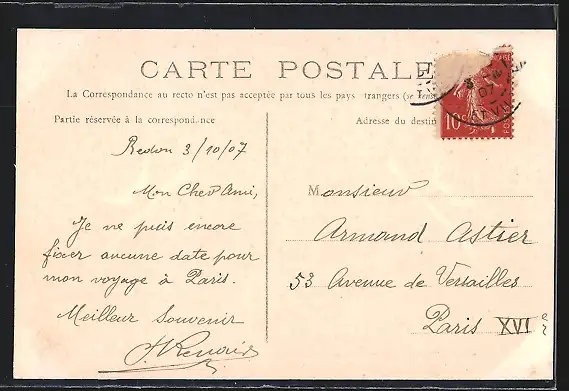 CARTE POSTALE
La Correspondance au recto n'est pas acceptée par tous les pays trangers (se
Partie réservée à la correspond nce
Adresse du destin
10
Redon 3/10/07
Mon Cher Ami,
Je ne puis encore
fixer aucune date pour
mon voyage à Paris.
Meilleur Souvenir
Monsieur
Armand Astier
53 Avenue de Versailles
Paris XVI e